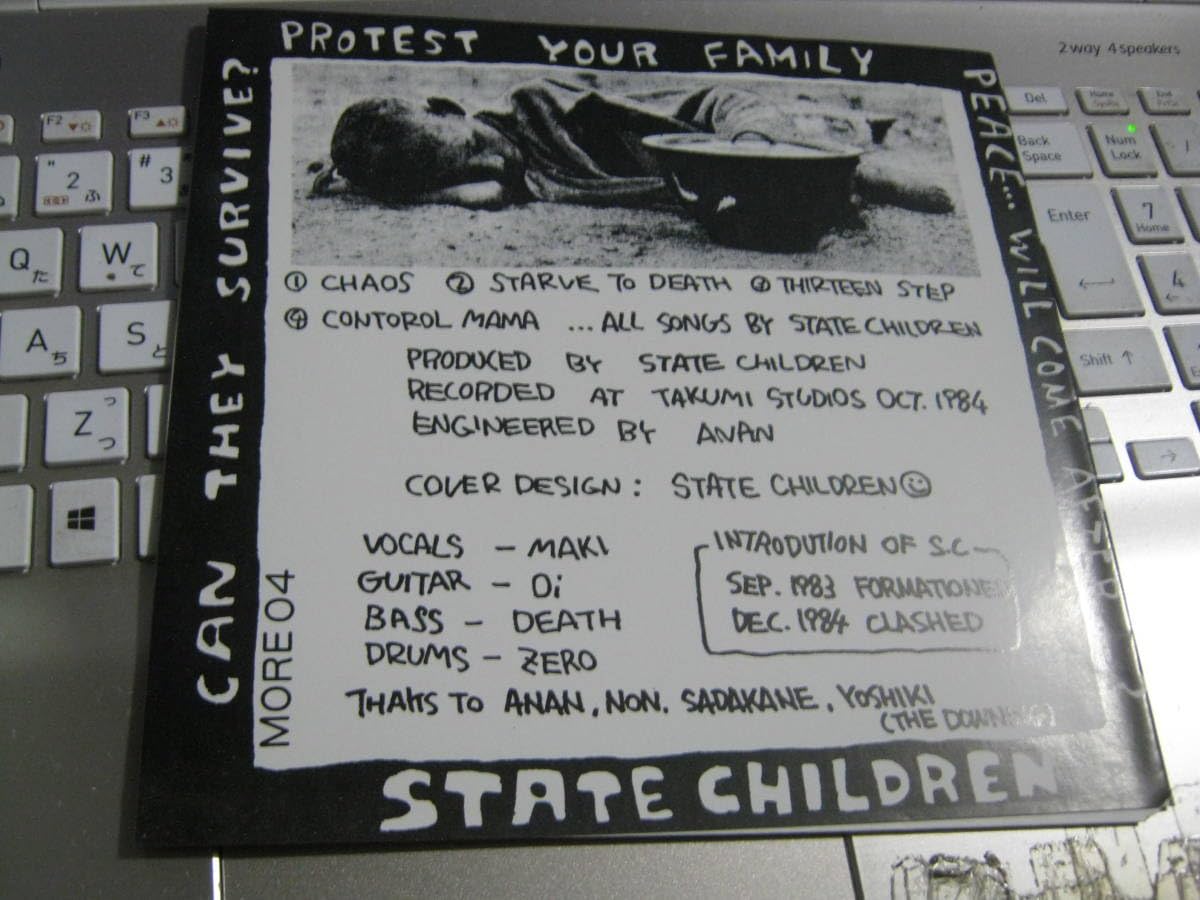 PROTEST YOUR FAMILY
CAN THEY SURVIVE?
PEACE... WILL COME AFTER
① CHAOS ② STARVE TO DEATH ③ THIRTEEN STEP
④ CONTOROL MAMA ...ALL SONGS BY STATE CHILDREN
PRODUCED BY STATE CHILDREN
RECORDED AT TAKUMI STUDIOS OCT. 1984
ENGINEERED BY ANAN
COVER DESIGN : STATE CHILDREN☺
VOCALS - MAKI
GUITAR - Oi
BASS - DEATH
DRUMS - ZERO
INTRODUTION OF S.C
SEP. 1983 FORMATIONED
DEC. 1984 CLASHED
THAKS TO ANAN, NON, SADAKANE, YOSHIKI
(THE
MORE 04
STATE CHILDREN
2way 4speakers
F2
F3
Del
Home
End
" 2 ふ
# 3
Back Space
Num Lock
Q た
W て
Enter
7 Home
4
A ち
S と
Shift ↑
Z っ つ